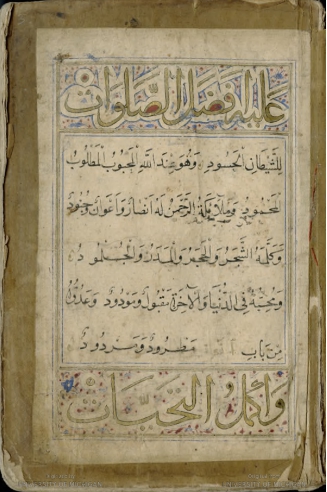 عليه افضل الصلوات
للشيطان الحسود وهو عند الله المحبوب المطلوب
المحمود وملائكة الرحمن له انصار واعوان وجنود
وكلمه الشجر والحجر والمدر والجلمود
ومحبه في الدنيا والاخرة مقبول ومودود وعدوه
من باب مطرود ومردود
واكمل التحيات